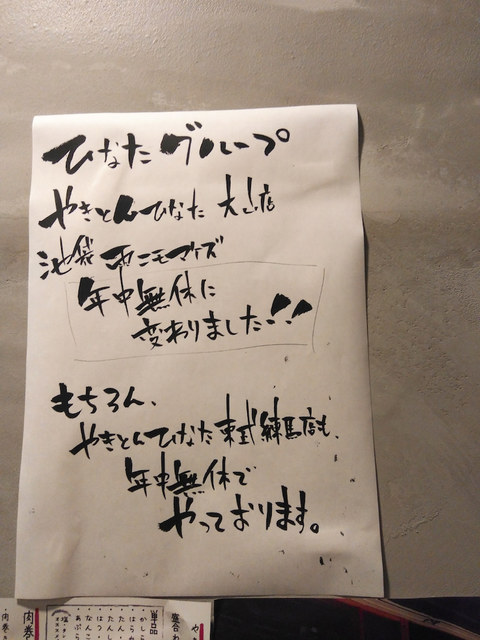 ひなたグループ
やきとんひなた 大山店
池袋 雨ニモマケズ
年中無休に
変わりました!!
もちろん、
やきとんひなた東武練馬店も、
年中無休で
やっております。
単品
肉巻